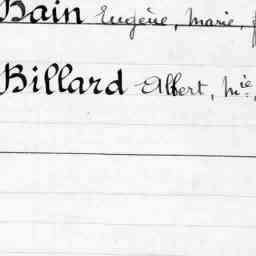 Bain Eugène, Marie,
Billard Albert, Mie,